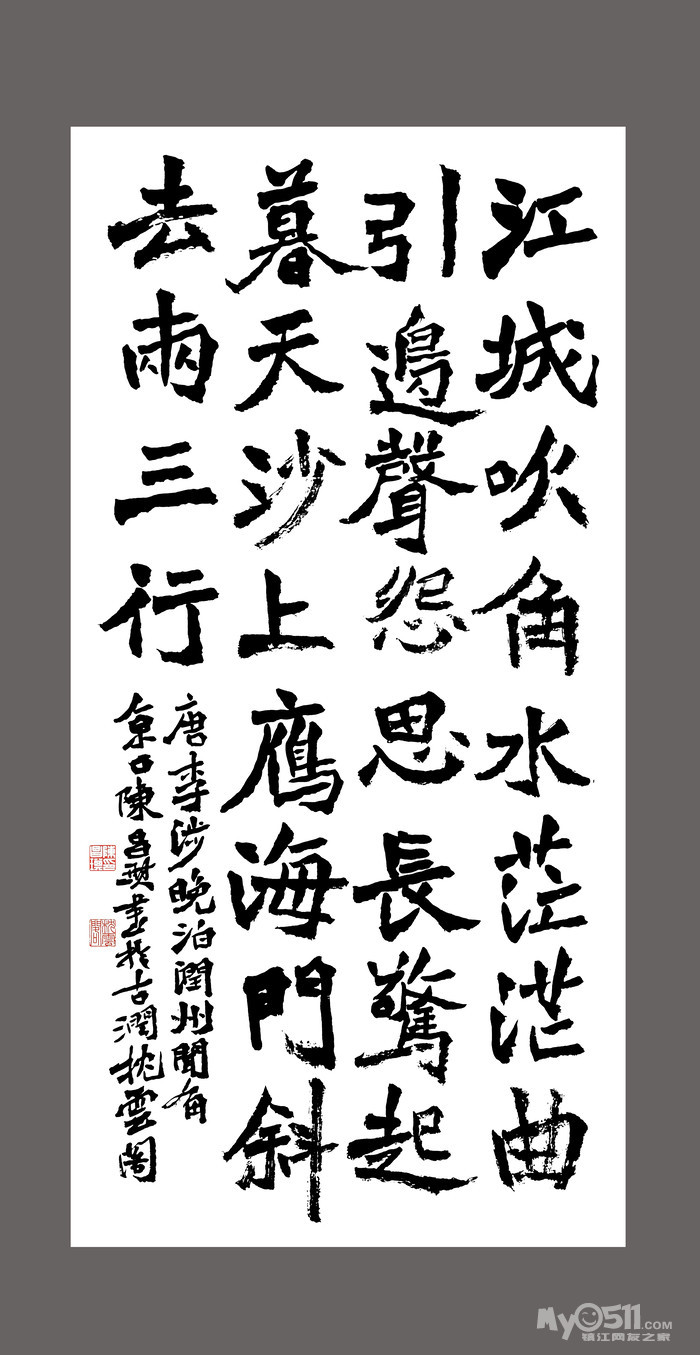 江城吹角水茫茫曲
引邊聲怨思長驚起
暮天沙上鴈海門斜
去兩三行
唐李涉晚泊潤州聞角
京口陳昌書於古潤枕雲閣
My0511.com
镇江网友之家